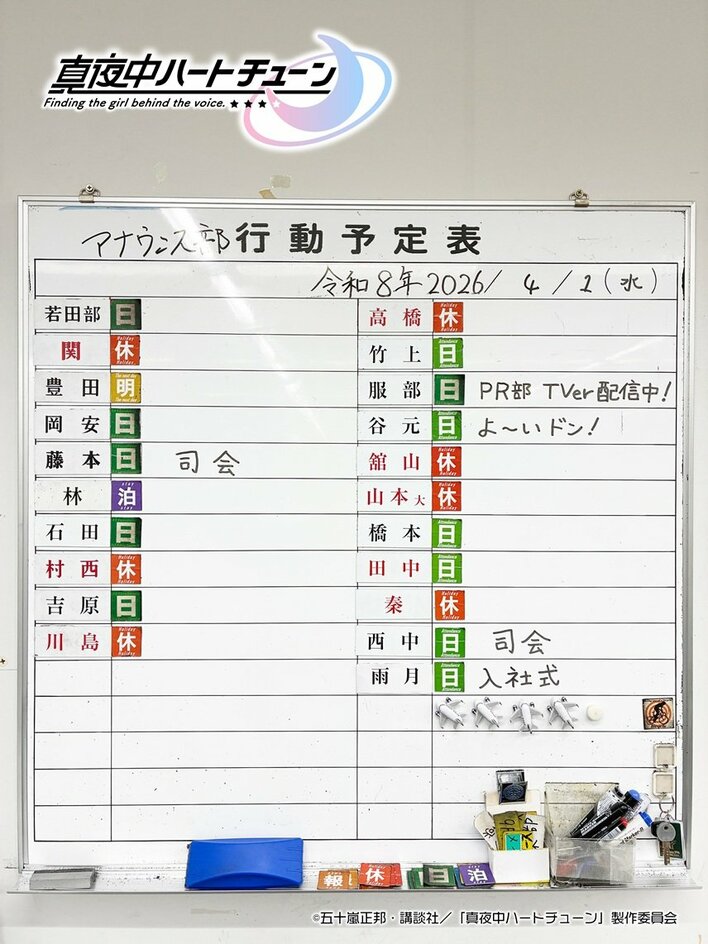 真夜中ハートチューン
Finding the girl behind the voice.
アナウンス部 行動予定表
令和8年 2026/ 4 / 1 (水)
若田部 日
関 休
豊田 明
岡安 日
藤本 日 司会
林 泊
石田 日
村西 休
吉原 日
川島 休
高橋 休
竹上 日
服部 日 PR部 TVer配信中!
谷元 日 よ〜いドン!
舘山 休
山本大 休
橋本 日
田中 日
秦 休
西中 日 司会
雨月 日 入社式
報 休 日 泊
©五十嵐正邦・講談社／「真夜中ハートチューン」製作委員会